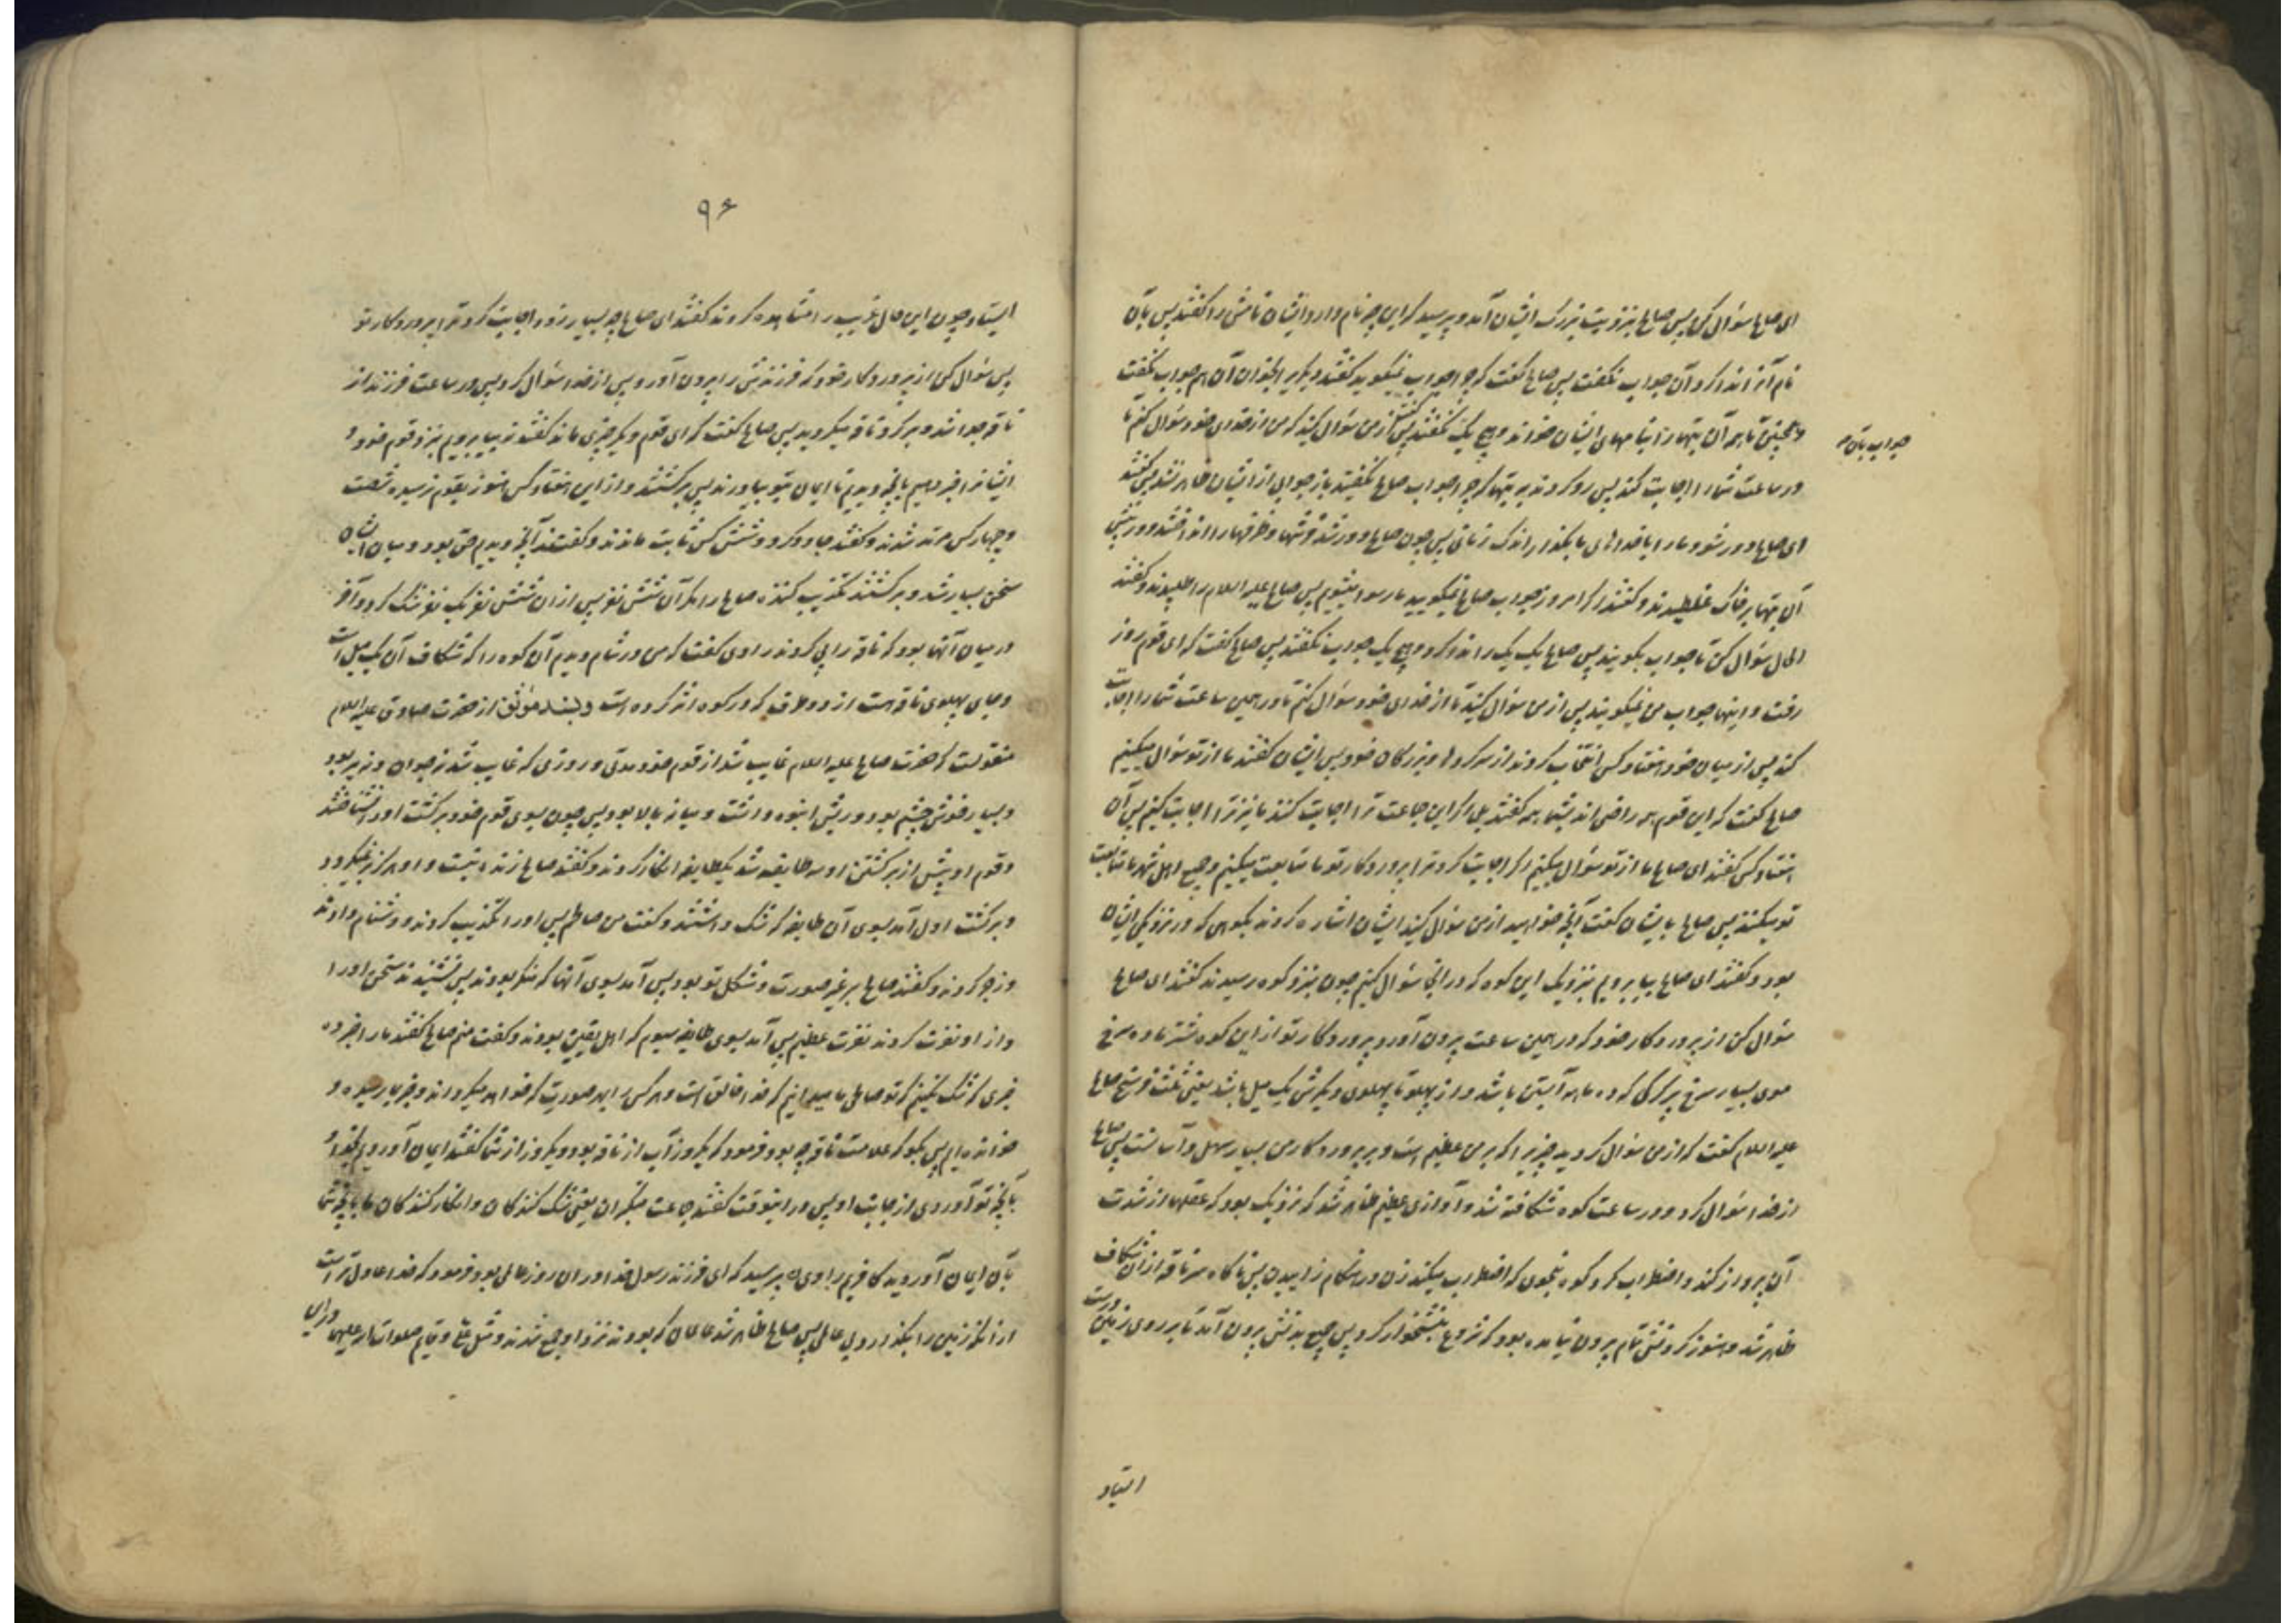 ای صالح سؤال کن پس صالح بنزد بت بزرک ایشان آمد و پرسید که این چه نام دارد ایشان نامش را کفتند پس بآن
نام آنرا ندا کرد آن جواب نکفت پس صالح کفت که چرا جواب نمیکوید کفتند دیکریرا بخوان آن هم جواب نکفت
و همچنین تا همه آن بتها را بنامهای ایشان خواند و هیچ یک نکفتند پس کفت از من سؤال کنید که من از خدای خود سؤال کنم تا
جواب بآن
در ساعت شما را اجابت کند پس رو کردند به بتها که چرا جواب صالح نکفتید باز جوابی از ایشان ظاهر نشد پس کفتند
ای صالح دور شو و ما را با خداهای ما بکذار اندک زمانی پس چون صالح دور شد فرشها و ظرفها را انداختند و در پیش
آن بتها بر خاک غلطیدند و کفتند اکر امروز جواب صالح نمیکویید ما رسوا میشویم پس صالح علیه السلام را طلبیدند و کفتند
الحال سؤال کن تا جواب بکویند پس صالح یک یک را ندا کرد و هیچ یک جواب نکفتند پس صالح کفت که ای قوم روز
رفت و اینها جواب من نمیکویند پس از من سؤال کنید تا از خدای خود سؤال کنم تا در همین ساعت شما را اجابت
کند پس از میان خود هفتاد کس انتخاب کردند از سرکردها و بزرکان خود پس ایشان کفتند ما از تو سؤال میکنیم
صالح کفت که این قوم همه راضی اند بشما همه کفتند بلی اکر این جماعت ترا اجابت کنند ما نیز ترا اجابت کنیم پس آن
هفتاد کس کفتند ای صالح ما از تو سؤال میکنیم اکر اجابت کرد ترا پروردکار تو ما متابعت میکنیم و جمیع اهل شهر ما متابعت
تو میکنند پس صالح بایشان کفت آنچه خواهید از من سؤال کنید ایشان اشاره کردند بکوهی که در نزدیکی ایشان
بود و کفتند ای صالح بیا برویم بنزدیک این کوه که در آنجا سؤال کنیم چون بنزد کوه رسیدند کفتند ای صالح
سؤال کن از پروردکار خود که در همین ساعت بیرون آورد پروردکار تو از این کوه شتر ماده سرخ
موی بسیار سرخ پر کرکی که ده ماهه آبستن باشد و از پهلو تا پهلوی دیکرش یک میل باشد یعنی ثلث فرسخ صالح
علیه السلام کفت که از من سؤال کردید چیزیرا که بر من عظیم است و بر پروردکار من بسیار سهل و آسانست پس صالح
از خدا سؤال کرد و در ساعت کوه شکافته شد و آوازی عظیم ظاهر شد که نزدیک بود که عقلها از شدت
آن پرواز کند و اضطراب کرد کوه بنحوی که اضطراب میکند زن در هنکام زاییدن پس ناکاه سر ناقه از ان شکاف
ظاهر شد و هنوز کردنش تمام بیرون نیامده بود که شروع بنشخوار کرد پس جمیع بدنش بیرون آمد تا بر روی زمین درست
استاد
۹۶
ایستاد چون این حال غریب را مشاهده کردند کفتند ای صالح چه بسیار زود اجابت کرد ترا پروردکار تو
پس سؤال کن از پروردکار خود که فرزندش را بیرون آورد پس از خدا سؤال کرد پس در ساعت فرزند از
ناقه جدا شد و بر کرد ناقه میکردید پس صالح کفت که ای قوم دیکر چیزی ماند کفتند نه بیا برویم بنزد قوم خود و
ایشانرا خبر دهیم بآنچه دیدیم تا ایمان بتو بیاورند پس برکشتند و از این هفتاد کس هنوز بقوم نرسیده شصت
و چهار کس مرتد شدند و کفتند جادو کرد و شش کس ثابت ماندند و کفتند آنچه دیدیم حق بود و میان ایشان
سخن بسیار شد و برکشتند تکذیب کننده صالح را مکر آن شش نفر پس از ان شش نفر یک نفر شک کرد و آخر
در میان آنها بود که ناقه را پی کردند راوی کفت که من در شام دیدم آن کوه را که شکاف آن یک میل است
و جای پهلوی ناقه هست از دو طرف که در کوه اثر کرده است و بسند موثق از حضرت صادق علیه السلام
منقولست که حضرت صالح علیه السلام غایب شد از قوم خود مدتی و روزی که غایب شد نه جوان و نه پیر بود
و بسیار خوش چشم بود و ریش انبوه داشت و میانه بالا بود پس چون بسوی قوم خود برکشت او را نشناختند
و قوم او پیش از برکشتن او سه طایفه شدند یک طایفه انکار کردند و کفتند صالح زنده نیست و او هرکز برنمیکردد
و برکشت اول آمد بسوی آن طایفه که شک داشتند و کفت من صالحم پس او را تکذیب کردند و دشنام دادند
و زجر کردند و کفتند صالح بر غیر صورت و شکل تو بود پس آمد بسوی آنها که منکر بودند پس نشنیدند سخن او را
و از او نفرت کردند نفرت عظیم پس آمد بسوی طایفه سیوم که اهل یقین بودند و کفت منم صالح کفتند ما را خبر ده
خبری که شک نکنیم که تو صالحی ما میدانیم که خدا خالق است و هر کس را بهر صورت که خواهد میکرداند و خبر بما رسیده و
خوانده ایم پس بکو که علامت ناقه چه بود فرمود که یکروز آب از ناقه بود و یکروز از شما کفتند ایمان آوردیم بخدا و
بآنچه تو آوردی از جانب او پس در اینوقت کفتند جماعت متکبران یعنی شک کنندکان و انکار کنندکان ما بآنچه شما
بآن ایمان آوردید کافریم راوی پرسید که ای فرزند رسول خدا در ان روز عالمی بود فرمود که خدا عادل تر است
از آنکه زمین را بکذارد بی عالمی پس صالح ظاهر شد عالمان که بودند نزد او جمع شدند و مثل علی و قایم صلوات الله علیهما در این